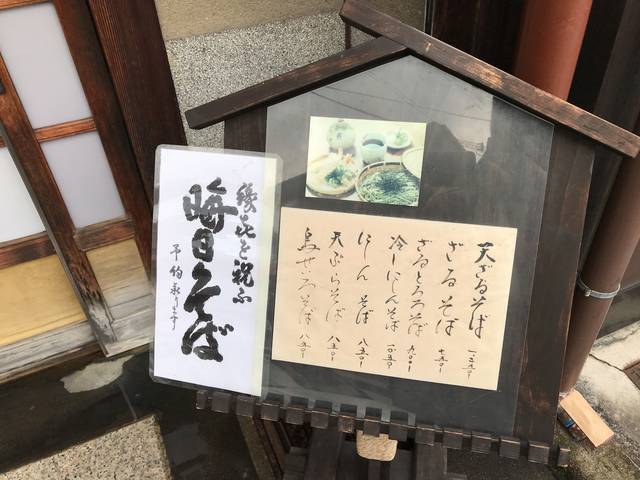 天ざるそば
ざるそば 七五〇
ざるとろろそば 九〇〇
冷しにしんそば 一〇五〇
にしんそば 八五〇
天ぷらそば 八五〇
鳥せいろそば 八五〇
縁起を祝ふ
晦日そば
予約承ります